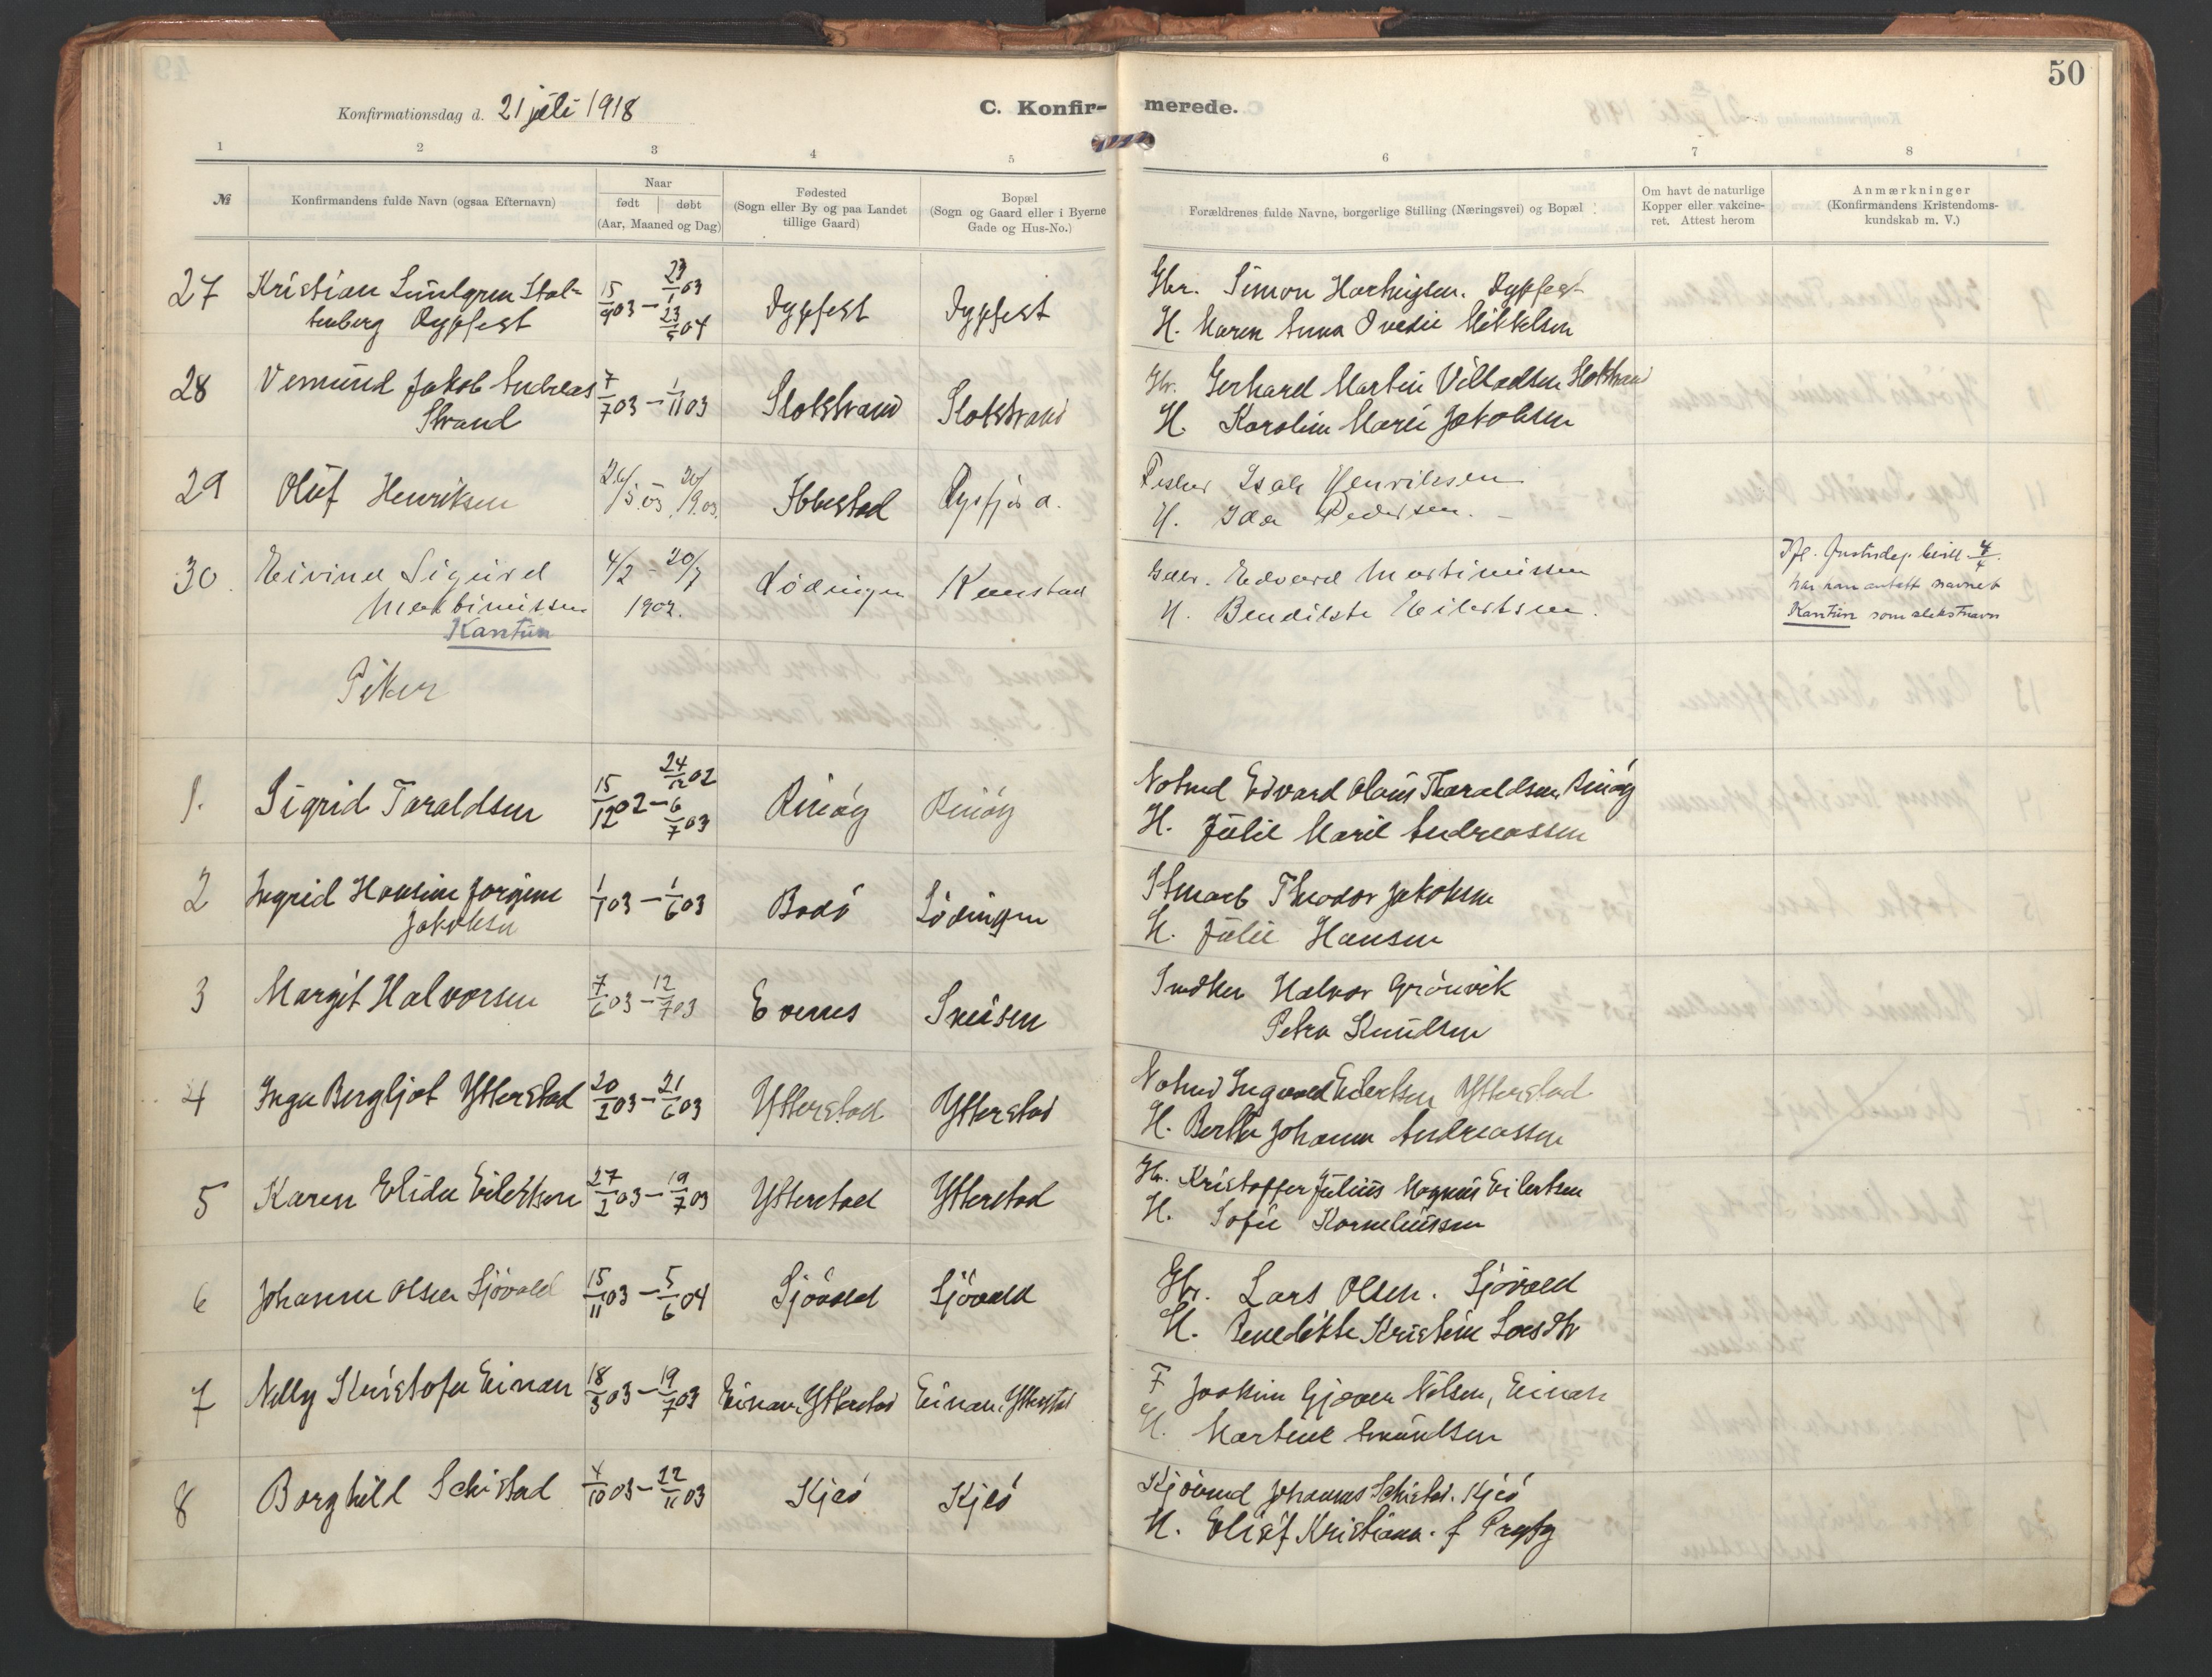 50
Konfirmationsdag d. 21 juli 1918
C. Konfir- merede.
1 2 3 4 5 6 7 8
№
Konfirmandens fulde Navn (ogsaa Efternavn)
Naar
født | døbt
(Aar, Maaned og Dag)
Fødested
(Sogn eller By og paa Landet
tillige Gaard)
Bopæl
(Sogn og Gaard eller i Byerne
Gade og Hus-No.)
Forældrenes fulde Navne, borgerlige Stilling (Næringsvei) og Bopæl
Om havt de naturlige
Kopper eller vakcine-
ret. Attest herom
Anmærkninger
(Konfirmandens Kristendoms-
kundskab m. V.)
27 Kristian Lundgren Stol-
tenberg Dypfest
15/9 03 – 23/1 03 23/5 04
Dypfest Dypfest
Gbr. Simon Hartvigsen. Dypfest
H. Maren Anna Mikkelsen
28 Vemund Jakob Andreas
Strand
7/7 03 – 1/11 03
Slotstrand Slotstrand
Gbr. Gerhard Martin Villadsen Slotstrand
H. Karolin Marie Jakobsen
29 Oluf Henriksen
26/5. 03 20/9. 03.
Ibbestad
Fisker Isak Henriksen
H. Ida Pedersen.
30. Eivind Sigurd
Martinussen
Kantun
4/2 - 20/7
1902.
Lødingen Kanstad
Gbr. Edvard Martinussen
H. Bendikte Eilertsen.
har han antatt navnet
Kantun som slektsnavn
Piker
1. Sigrid Taraldsen
15/12 02 – 24/12 02 6/7 03
Rinöy Rinöy
Notmd Edvard Olaus Tharaldsen, Rinöy
H. Julie Marie Andreassen
2 Ingrid Hansine Jorgine
Jakobsen
1/1 03 – 1/6 03
Bodö Lödingen
Theodor Jakobsen
H. Julie Hansen
3 Margit Halvorsen
7/6 03 – 12/7 03
Evenes
Halvor Grönvik
Petra Knudsen
4 Inga Bergljot Ytterstad
20/2 03 – 21/6 03
Ytterstad Ytterstad
Notmd Ingvald Eilertsen Ytterstad
H. Bertha Johanna Andreassen
5 Karen Elida Eilertsen
27/2 03 – 19/7 03
Ytterstad Ytterstad
Gbr. Kristoffer Julius Magnus Eilertsen
H. Sofie Korneliussen
6 Johanne Olsen Sjövold
15/11 03 – 5/6 04
Sjövold Sjövold
Gbr. Lars Olsen. Sjövold
H. Benedikte Kristine
7 Nelly Kristofa Einan
18/3 03 – 19/7 03
Einan, Ytterstad Einan, Ytterstad
F Joakim Gjæver Nilsen, Einan
H. Martine Amundsen
8 Borghild Schistad
4/10 03 – 22/11 03
Kjeö Kjeö
Johannes Schistad. Kjeö
H. Kristiana. f Prytz